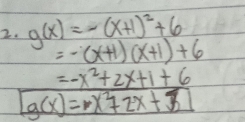 2. g(x) = -(x+1)² + 6
= -(x+1)(x+1) + 6
= -x² + 2x + 1 + 6
g(x) = -x² + 2x +